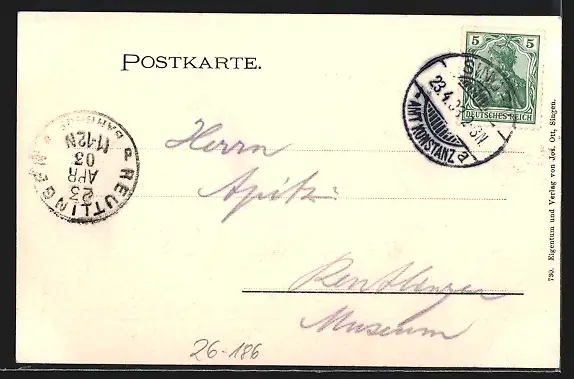 POSTKARTE.
5 5
DEUTSCHES REICH
SINGEN
23.4.03. 2-3N
AMT KONSTANZ
a
REUTLINGEN
BAHNHOF
23
APR
03
11-12N
Herrn
Apoth.
Reutlingen
Museum
26-186
730. Eigentum und Verlag von Jos. Ott, Singen.